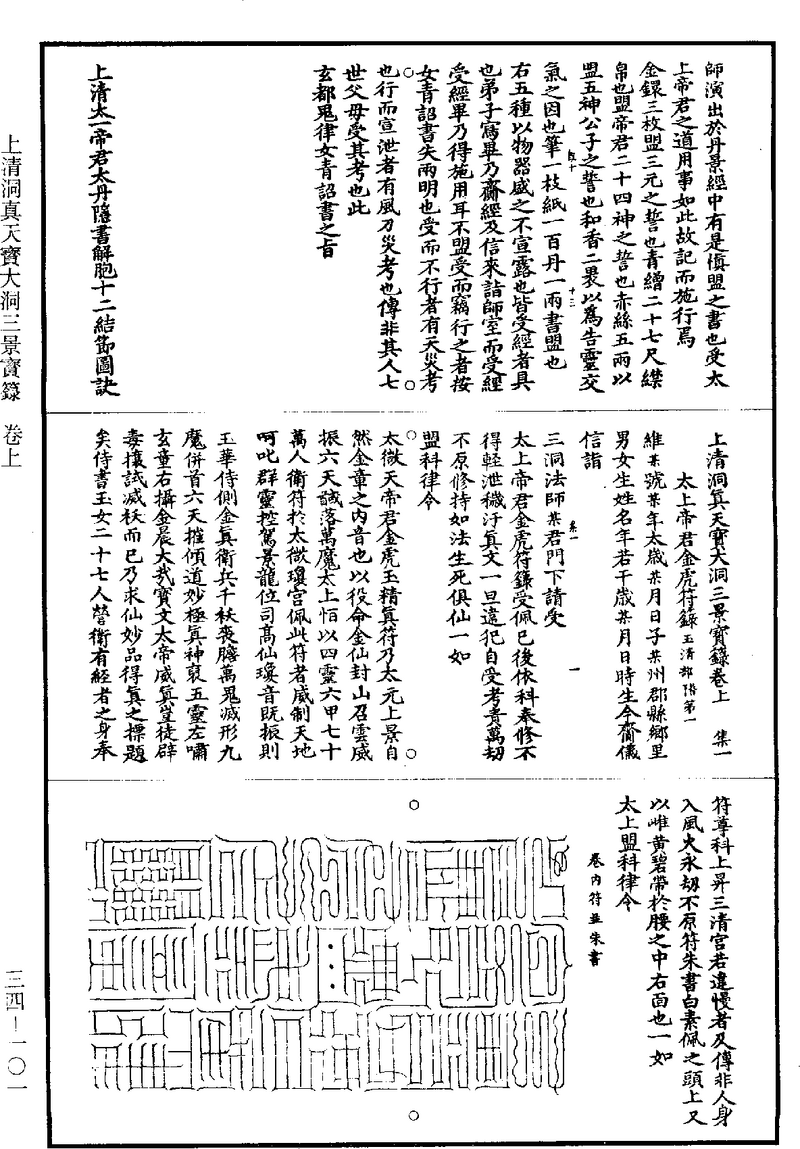 師演出於丹景經中有是慎盟之書也受太
上帝君之道用事如此故記而施行焉
金鐶三枚盟三元之誓也青繒二十七尺縩
帛也盟帝君二十四神之誓也赤絲五兩以
盟五神公子之誓也和香二裹以爲告靈交
十三
氣之因也筆一枝紙一百丹一兩書盟也
右五種以物器盛之不宣露也皆受經者具
也弟子寫畢乃齋經及信來詣師室而受經
受經畢乃得施用耳不盟受而竊行之者按
女青詔書失兩明也受而不行者有天災考
也行而宣泄者有風刀災考也傳非其人七
世父母受其考也此
玄都鬼律女青詔書之旨
上清太一帝君太丹隱書解胞十二結節圖訣
上清洞真天寶大洞三景寶籙卷上 集一
太上帝君金虎符籙 玉清部 第一
維某號某年太歲某月日子某州郡縣鄉里
男女生姓名年若干歲某月日時生今齎儀
信詣
三洞法師某君門下請受
集一 一
太上帝君金虎符籙受佩已後依科奉修不
得輕泄穢汙真文一旦違犯自受考責萬劫
不原修持如法生死俱仙一如
盟科律令
太微天帝君金虎玉精真符乃太元上景自
然金章之內音也以役命金仙封山召雲威
振六天馘落萬魔太上恒以四靈六甲七十
萬人衛符於太微瓊宮佩此符者威制天地
呵叱群靈控駕景龍位司高仙瓊音既振則
玉華侍側金真衛兵千袄喪膽萬鬼滅形九
魔併首六天摧傾道妙極真神裒五靈左嘯
玄童右攝金晨大哉寶文太帝威真豈徒辟
毒攘試滅袄而已乃求仙妙品得真之標題
矣侍書玉女二十七人營衛有經者之身奉
符尊科上昇三清宮若違慢者及傳非人身
入風火永劫不原符朱書白素佩之頭上又
以雌黃碧帶於腰之中右面也一如
太上盟科律令
卷內符並朱書
上清洞真天寶大洞三景寶籙 卷上
三四—一〇一